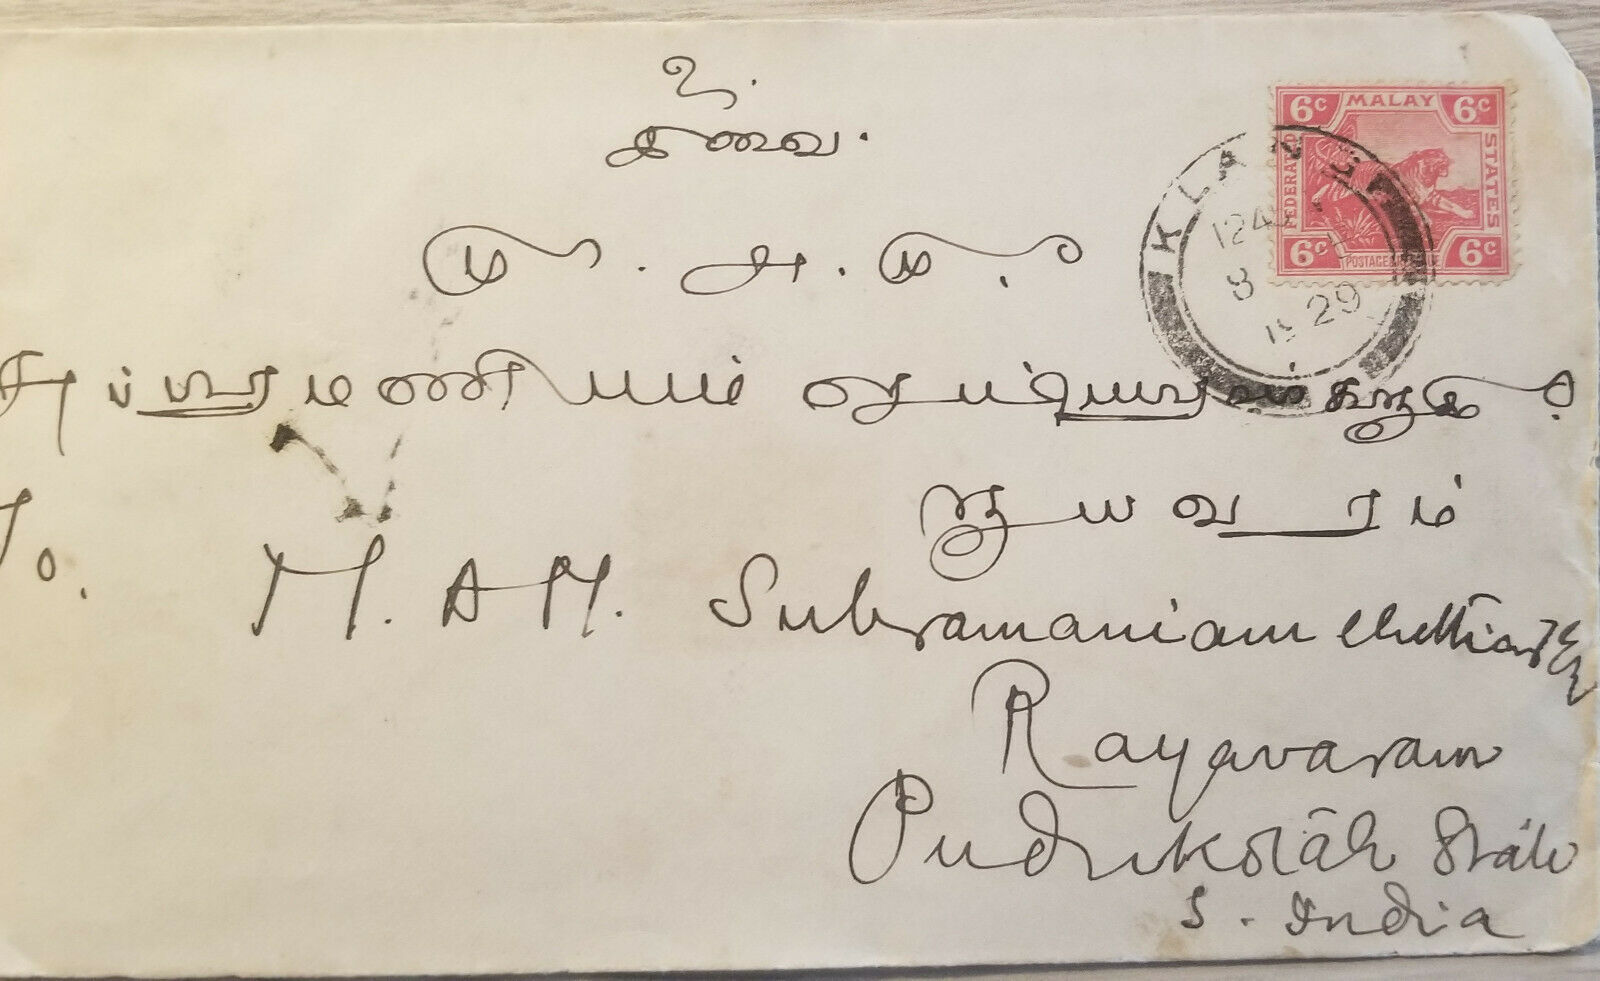 உ
சிவை.
மு. அ. மு.
சுப்பிரமணியம் செட்டியாரவர்களுக்கு.
ராயவரம்
To.
M. AM. Subramaniam Chettiar
Rayavaram
Pudukotah State
S. India
6c MALAY 6c
FEDERATED
STATES
6c 6c
KLANG
1245
8
1929